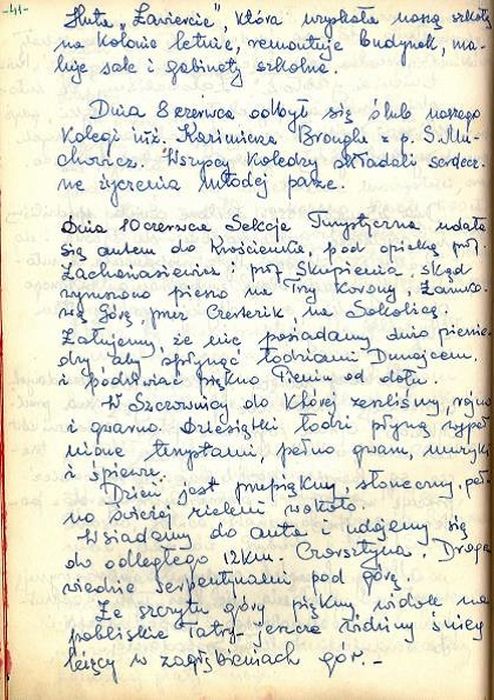 -41-
Huta „Zawiercie", która uzyskała naszą szkołę
na kolonie letnie, remontuje budynek, ma-
luje sale i gabinety szkolne.
Dnia 8 czerwca odbył się ślub naszego
kolegi inż. Kazimierza Brongla z p. S. Mu-
chowicz. Wszyscy koledzy składali serdecz-
ne życzenia młodej parze.
Dnia 10 czerwca Sekcja Turystyczna udała
się autem do Krościenka, pod opieką prof.
Zachariasiewicz i prof. Skupienia, skąd
wyruszono pieszo na Trzy Korony, Zamko-
wą Górę, przez Czerteżik, na Sokolicę.
Żałujemy, że nie posiadamy dużo pienię-
dzy, aby spłynąć łodziami Dunajcem,
i podziwiać piękno Pienin od dołu.
W Szczawnicy do której zeszliśmy, rojno
i gwarno. Dziesiątki łodzi płyną wypeł-
nione turystami, pełno gwaru, muzyki
i śpiewu.
Dzień jest przepiękny, słoneczny, peł-
no świeżej zieleni wokoło.
Wsiadamy do auta i udajemy się
do odległego 12 km. Czorsztyna. Droga
wiedzie serpentynami pod górę.
Ze szczytu góry piękny widok na
pobliskie Tatry – jeszcze widzimy śnieg
leżący w zagłębieniach gór. –